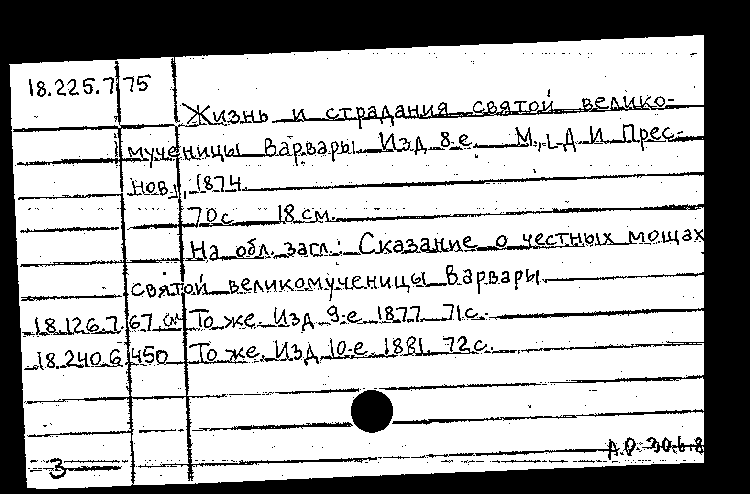 18.225.7 75
Жизнь и страдания святой велико-
мученицы Варвары. Изд 8-е. М., Д И Прес-
нов], 1874.
70 с 18 см.
На обл. загл.: Сказание о честных мощах
святой великомученицы Варвары.
18.126.7. 67 То же. Изд 9-е 1877 71 с.
18.240.6 450 То же. Изд 10-е. 1881. 72 с.
3